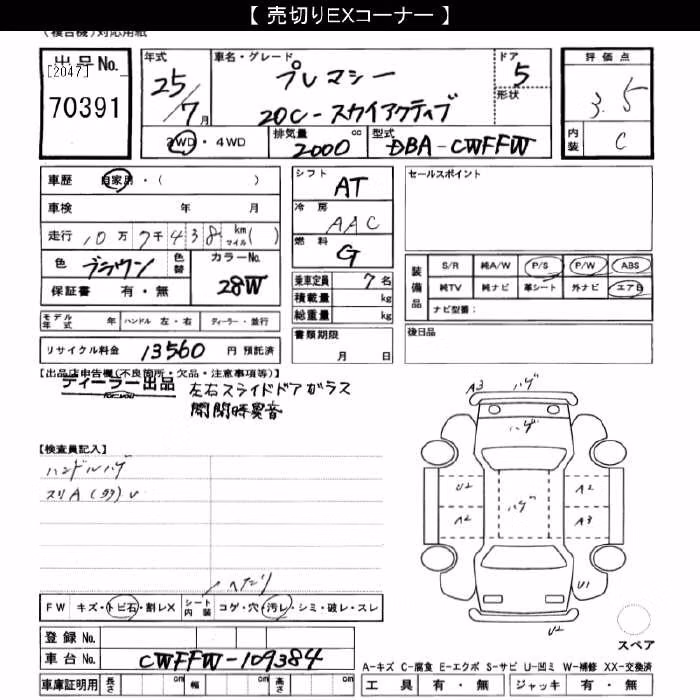 【 売切りEXコーナー 】
(複合機)対応用紙
出品No.
[2047]
70391
年式 25/7月
車名・グレード プレマシー
20C-スカイアクティブ
ドア 5
形状
評価点 3.5
内装 C
2WD・4WD
排気量 2000 cc
型式 DBA-CWFFW
車歴 自家用・( )
車検 年 月
走行 10万7千438 km マイル( )
色 ブラウン 色替
カラーNo. 28W
保証書 有・無
シフト AT
冷房 AAC
燃料 G
乗車定員 7名
積載量 kg
総重量 kg
書類期限
月 日
セールスポイント
装備品
S/R 純A/W P/S P/W ABS
純TV 純ナビ 革シート 外ナビ エアB
ナビ型番:
後日品
モデル年式 年 ハンドル 左・右 ディーラー・並行
リサイクル料金 13560 円 預託済
【出品店申告欄(不良箇所・欠品・注意事項等)】
ディーラー出品
FOR YOU
左右スライドドアガラス
開閉時異音
【検査員記入】
ハンドルハゲ
スリA(タタ)U
ヘたり
FW キズ・トビ石・割レX
シート内装 コゲ・穴・汚レ・シミ・破レ・スレ
登録No.
車台No. CWFFW-109384
車庫証明用 長さ cm 幅 cm 高さ cm
A3 ハゲ
ハゲ
U2 A2
ハゲ
A2 A3
U1
U2
スペア
A-キズ C-腐食 E-エクボ S-サビ U-凹ミ W-補修 XX-交換済
工具 有・無 ジャッキ 有・無